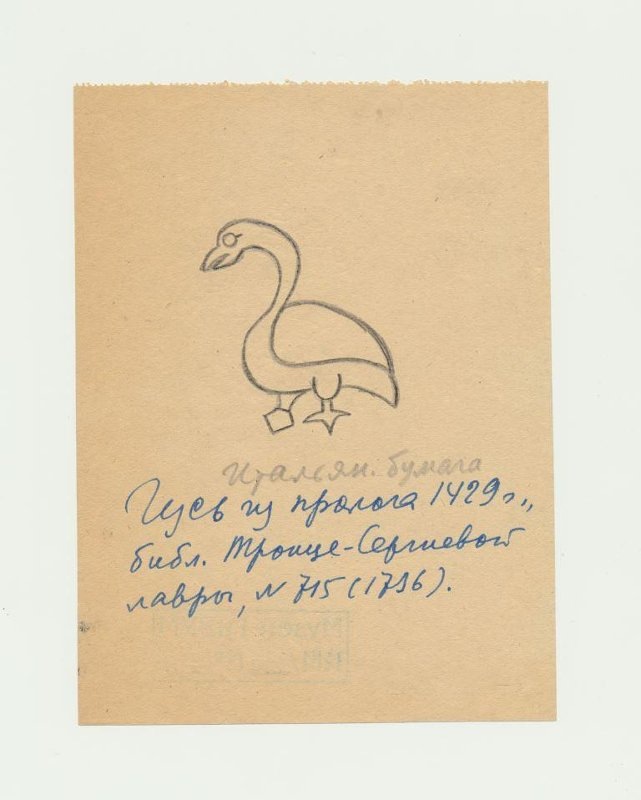 Итальян. бумага
Гусь из пролога 1429 г.,
библ. Троице-Сергиевой
лавры, № 715 (1736).